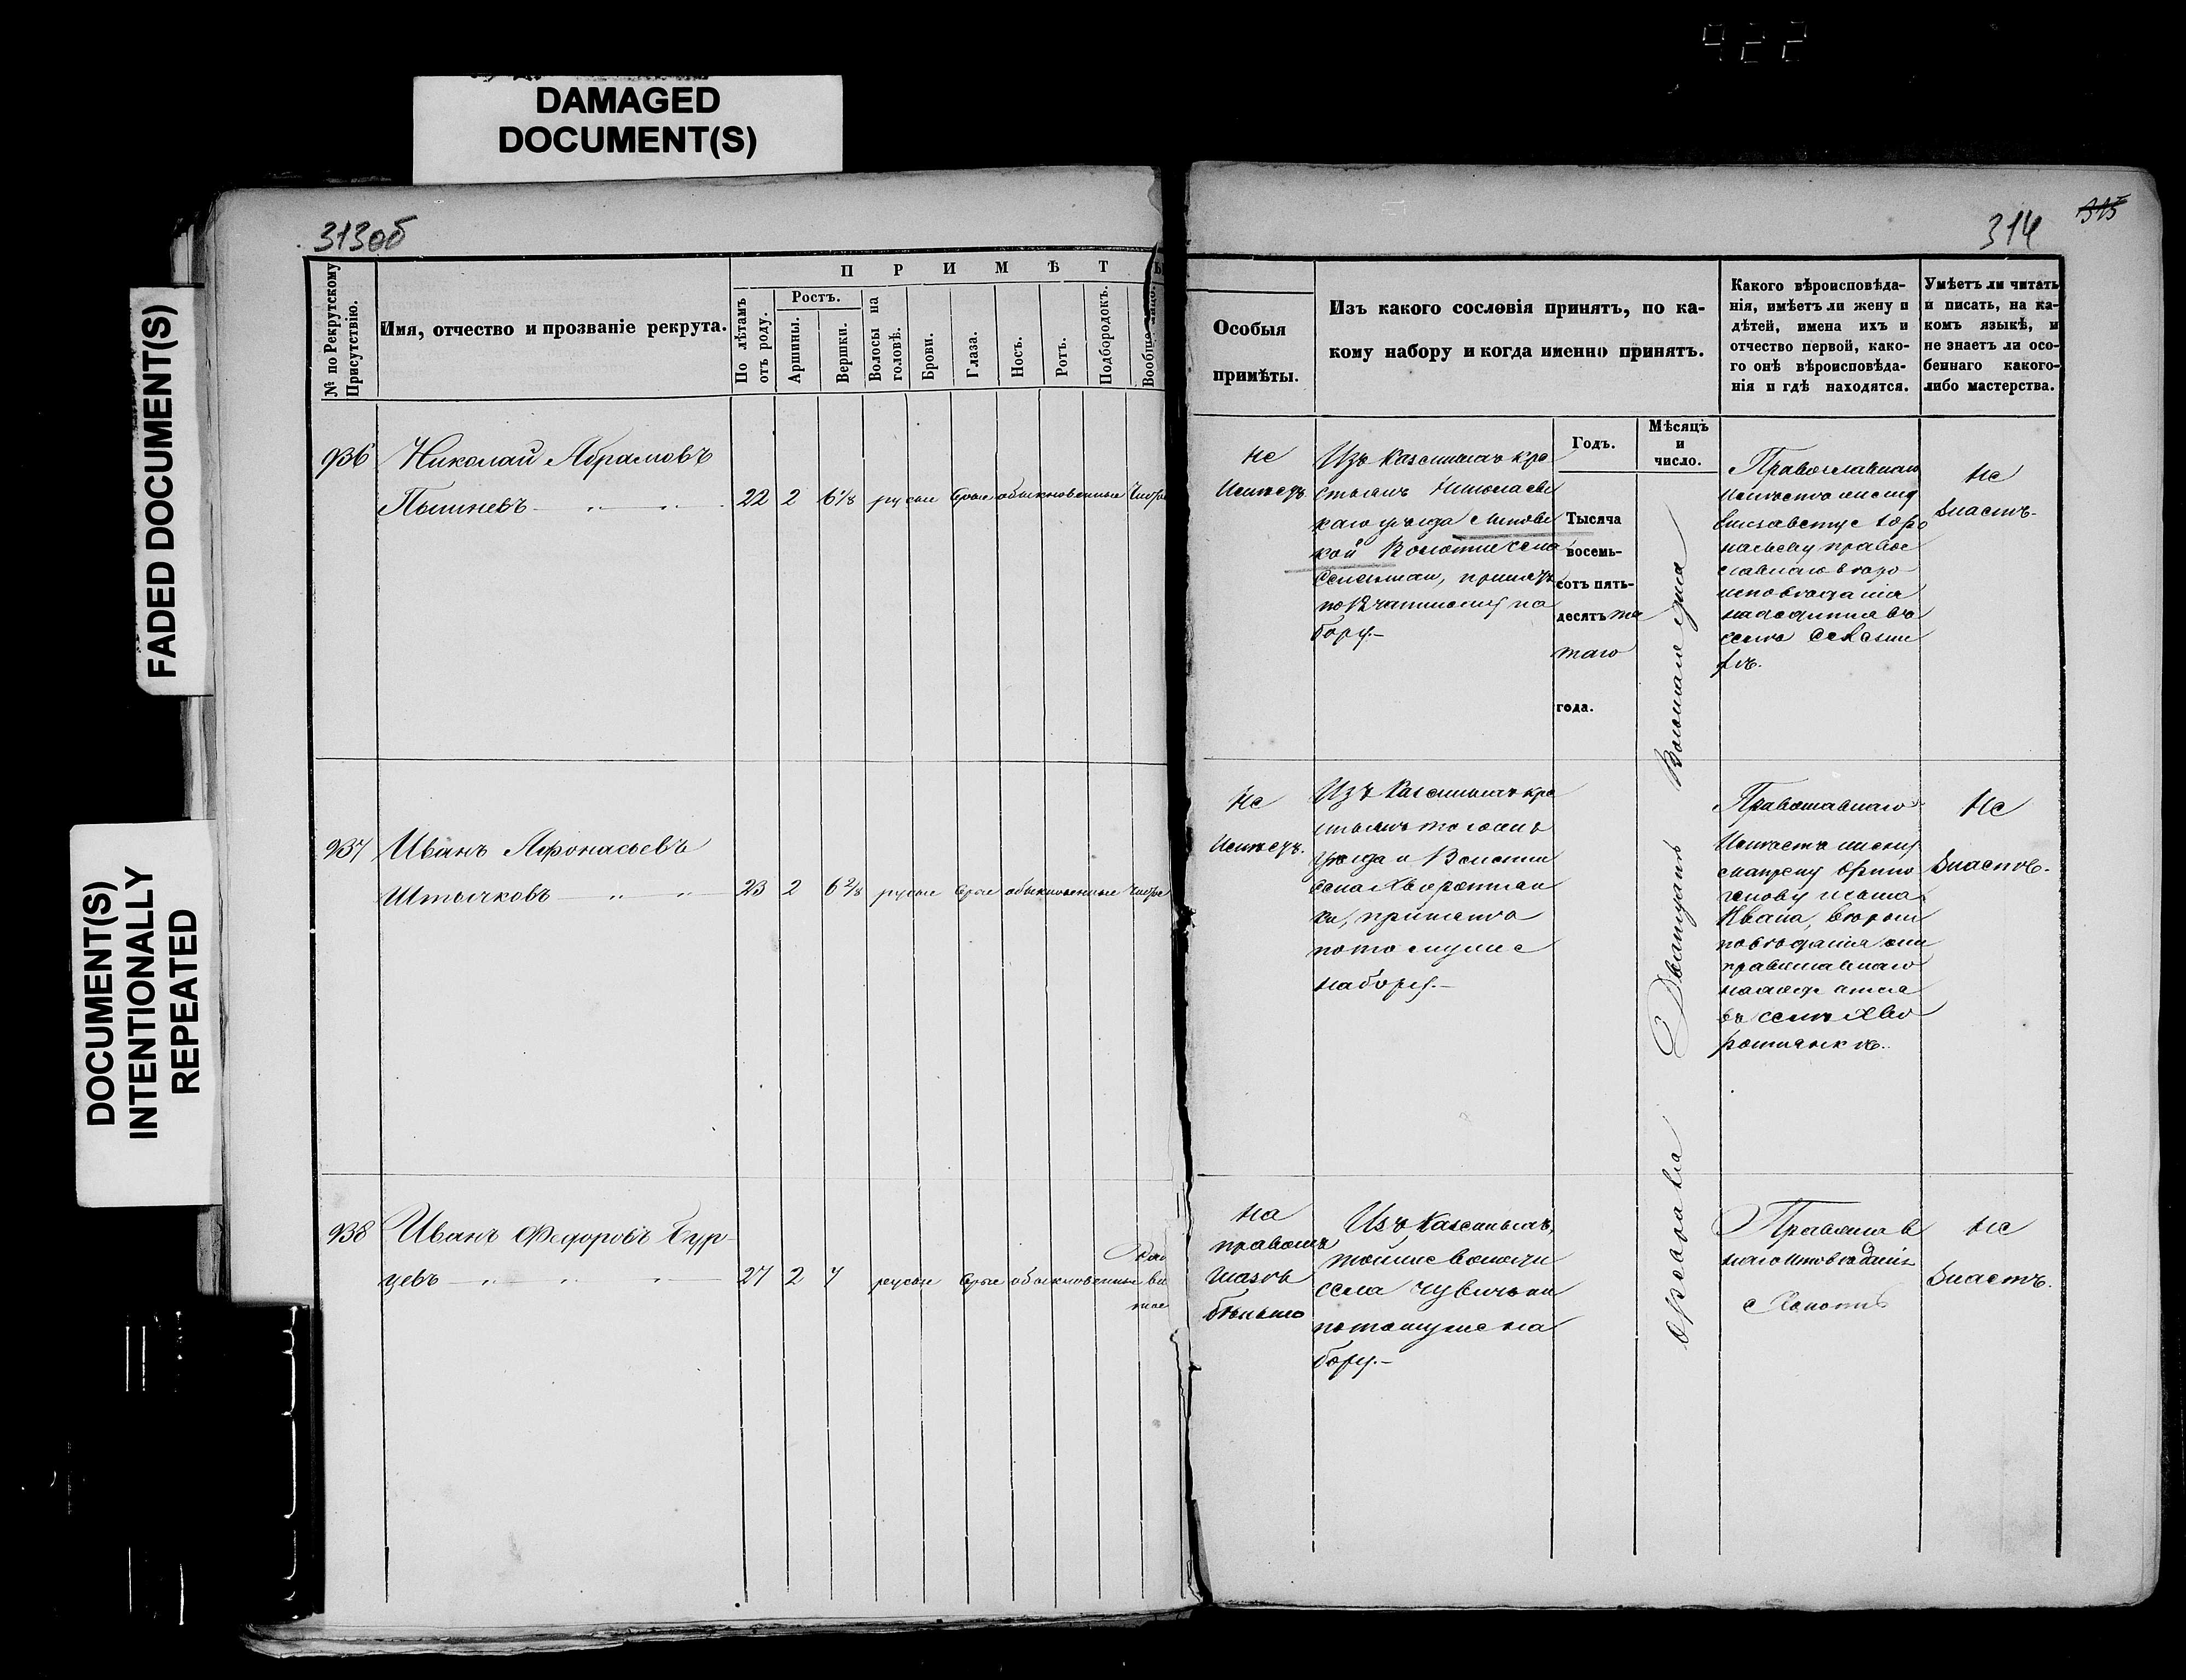 422
DAMAGED
DOCUMENT(S)
FADED DOCUMENT(S)
DOCUMENT(S)
INTENTIONALLY
REPEATED
313об
№ по Рекрутскому
Присутствію.
Имя, отчество и прозваніе рекрута.
П Р И М Ѣ Т Ы
По лѣтамъ
отъ роду.
Ростъ.
Аршины.
Вершки.
Волосы на
головѣ.
Брови.
Глаза.
Носъ.
Ротъ.
Подбородокъ.
Вообще лицо.
936
Николай Абрамовъ
22 2 6 1/8 русые серые обыкновенные чистое
937 Иванъ Афонасьевъ
Штычковъ
23 2 6 2/8 русые серые обыкновенные чистое
938 Иванъ Федоровъ Бур-
цевъ
27 2 7 русые серые обыкновенные
314
315
Особыя
примѣты.
Изъ какого сословія принятъ, по ка-
кому набору и когда именно принятъ.
Какого вѣроисповѣда-
нія, имѣетъ ли жену и
дѣтей, имена ихъ и
отчество первой, како-
го онѣ вѣроисповѣда-
нія и гдѣ находятся.
Умѣетъ ли читать
и писать, на ка-
комъ языкѣ, и
не знаетъ ли осо-
беннаго какого-
либо мастерства.
Годъ.
Мѣсяцъ
и
число.
Не
имѣетъ.
Изъ казенныхъ кре
стьянъ Николаевс
каго уѣзда
кой Волости села
принятъ
по на
бору.-
Тысяча
восемь-
сотъ пять-
десятъ пя
таго
года.
Февраля Двадцать Восьмаго дня
Православнаго
имѣетъ жену
Елизавету
правос
лавнаго вѣро
исповѣданія
находится въ
селѣ
Не
знаетъ.
Не
имѣетъ.
Изъ казенныхъ кре
стьянъ того же
уѣзда и Волости
села Хворостян
ки, принятъ
по тому же
набору.-
Православнаго
имѣетъ жену
сына
Ивана, вѣроис
повѣданія они
православнаго
находятся
въ селѣ Хво
ростянкѣ.
Не
знаетъ.
На
правомъ
глазѣ
бѣльмо
Изъ казенныхъ,
той же волости
села
по тому же на
бору.-
Православ
наго исповѣданія
холостъ
Не
знаетъ.